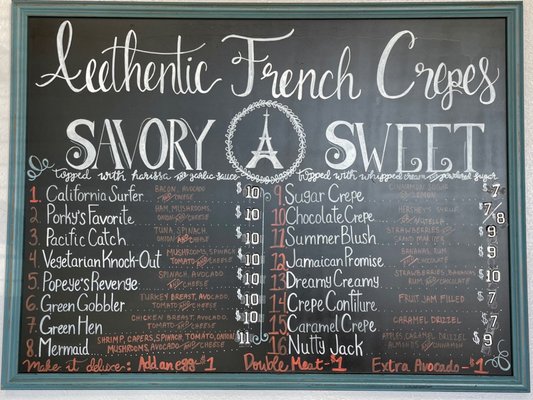 Authentic French Crepes
SAVORY
SWEET
Topped with harissa and garlic sauce
Topped with whipped cream and powdered sugar
1. California Surfer BACON, AVOCADO AND CHEESE $10
2. Porky's Favorite HAM, MUSHROOMS, ONION AND CHEESE $10
3. Pacific Catch TUNA, SPINACH, ONION AND CHEESE $10
4. Vegetarian Knock-Out MUSHROOMS, SPINACH TOMATO AND CHEESE $10
5. Popeye's Revenge SPINACH, AVOCADO AND CHEESE $10
6. Green Gobbler TURKEY BREAST, AVOCADO, TOMATO AND CHEESE $10
7. Green Hen CHICKEN BREAST, AVOCADO, TOMATO AND CHEESE $10
8. Mermaid SHRIMP, CAPERS, SPINACH, TOMATO, ONION, MUSHROOMS, AVOCADO AND CHEESE $11
9 Sugar Crepe CINNAMON SUGAR $7
10 Chocolate Crepe HERSHEY'S NUTELLA $7/8
11 Summer Blush STRAWBERRIES GRAND MARNIER $9
12 Jamaican Promise BANANAS, RUM CHOCOLATE $9
13 Dreamy Creamy STRAWBERRIES, BANANAS, RUM CHOCOLATE $10
14 Crepe Confiture FRUIT JAM FILLED $7
15 Caramel Crepe CARAMEL DRIZZEL $7
16 Nutty Jack APPLES, CARAMEL DRIZZEL ALMONDS CINNAMON $9
Make it deluxe: Add an egg - $1 Double Meat - $1 Extra Avocado - $1